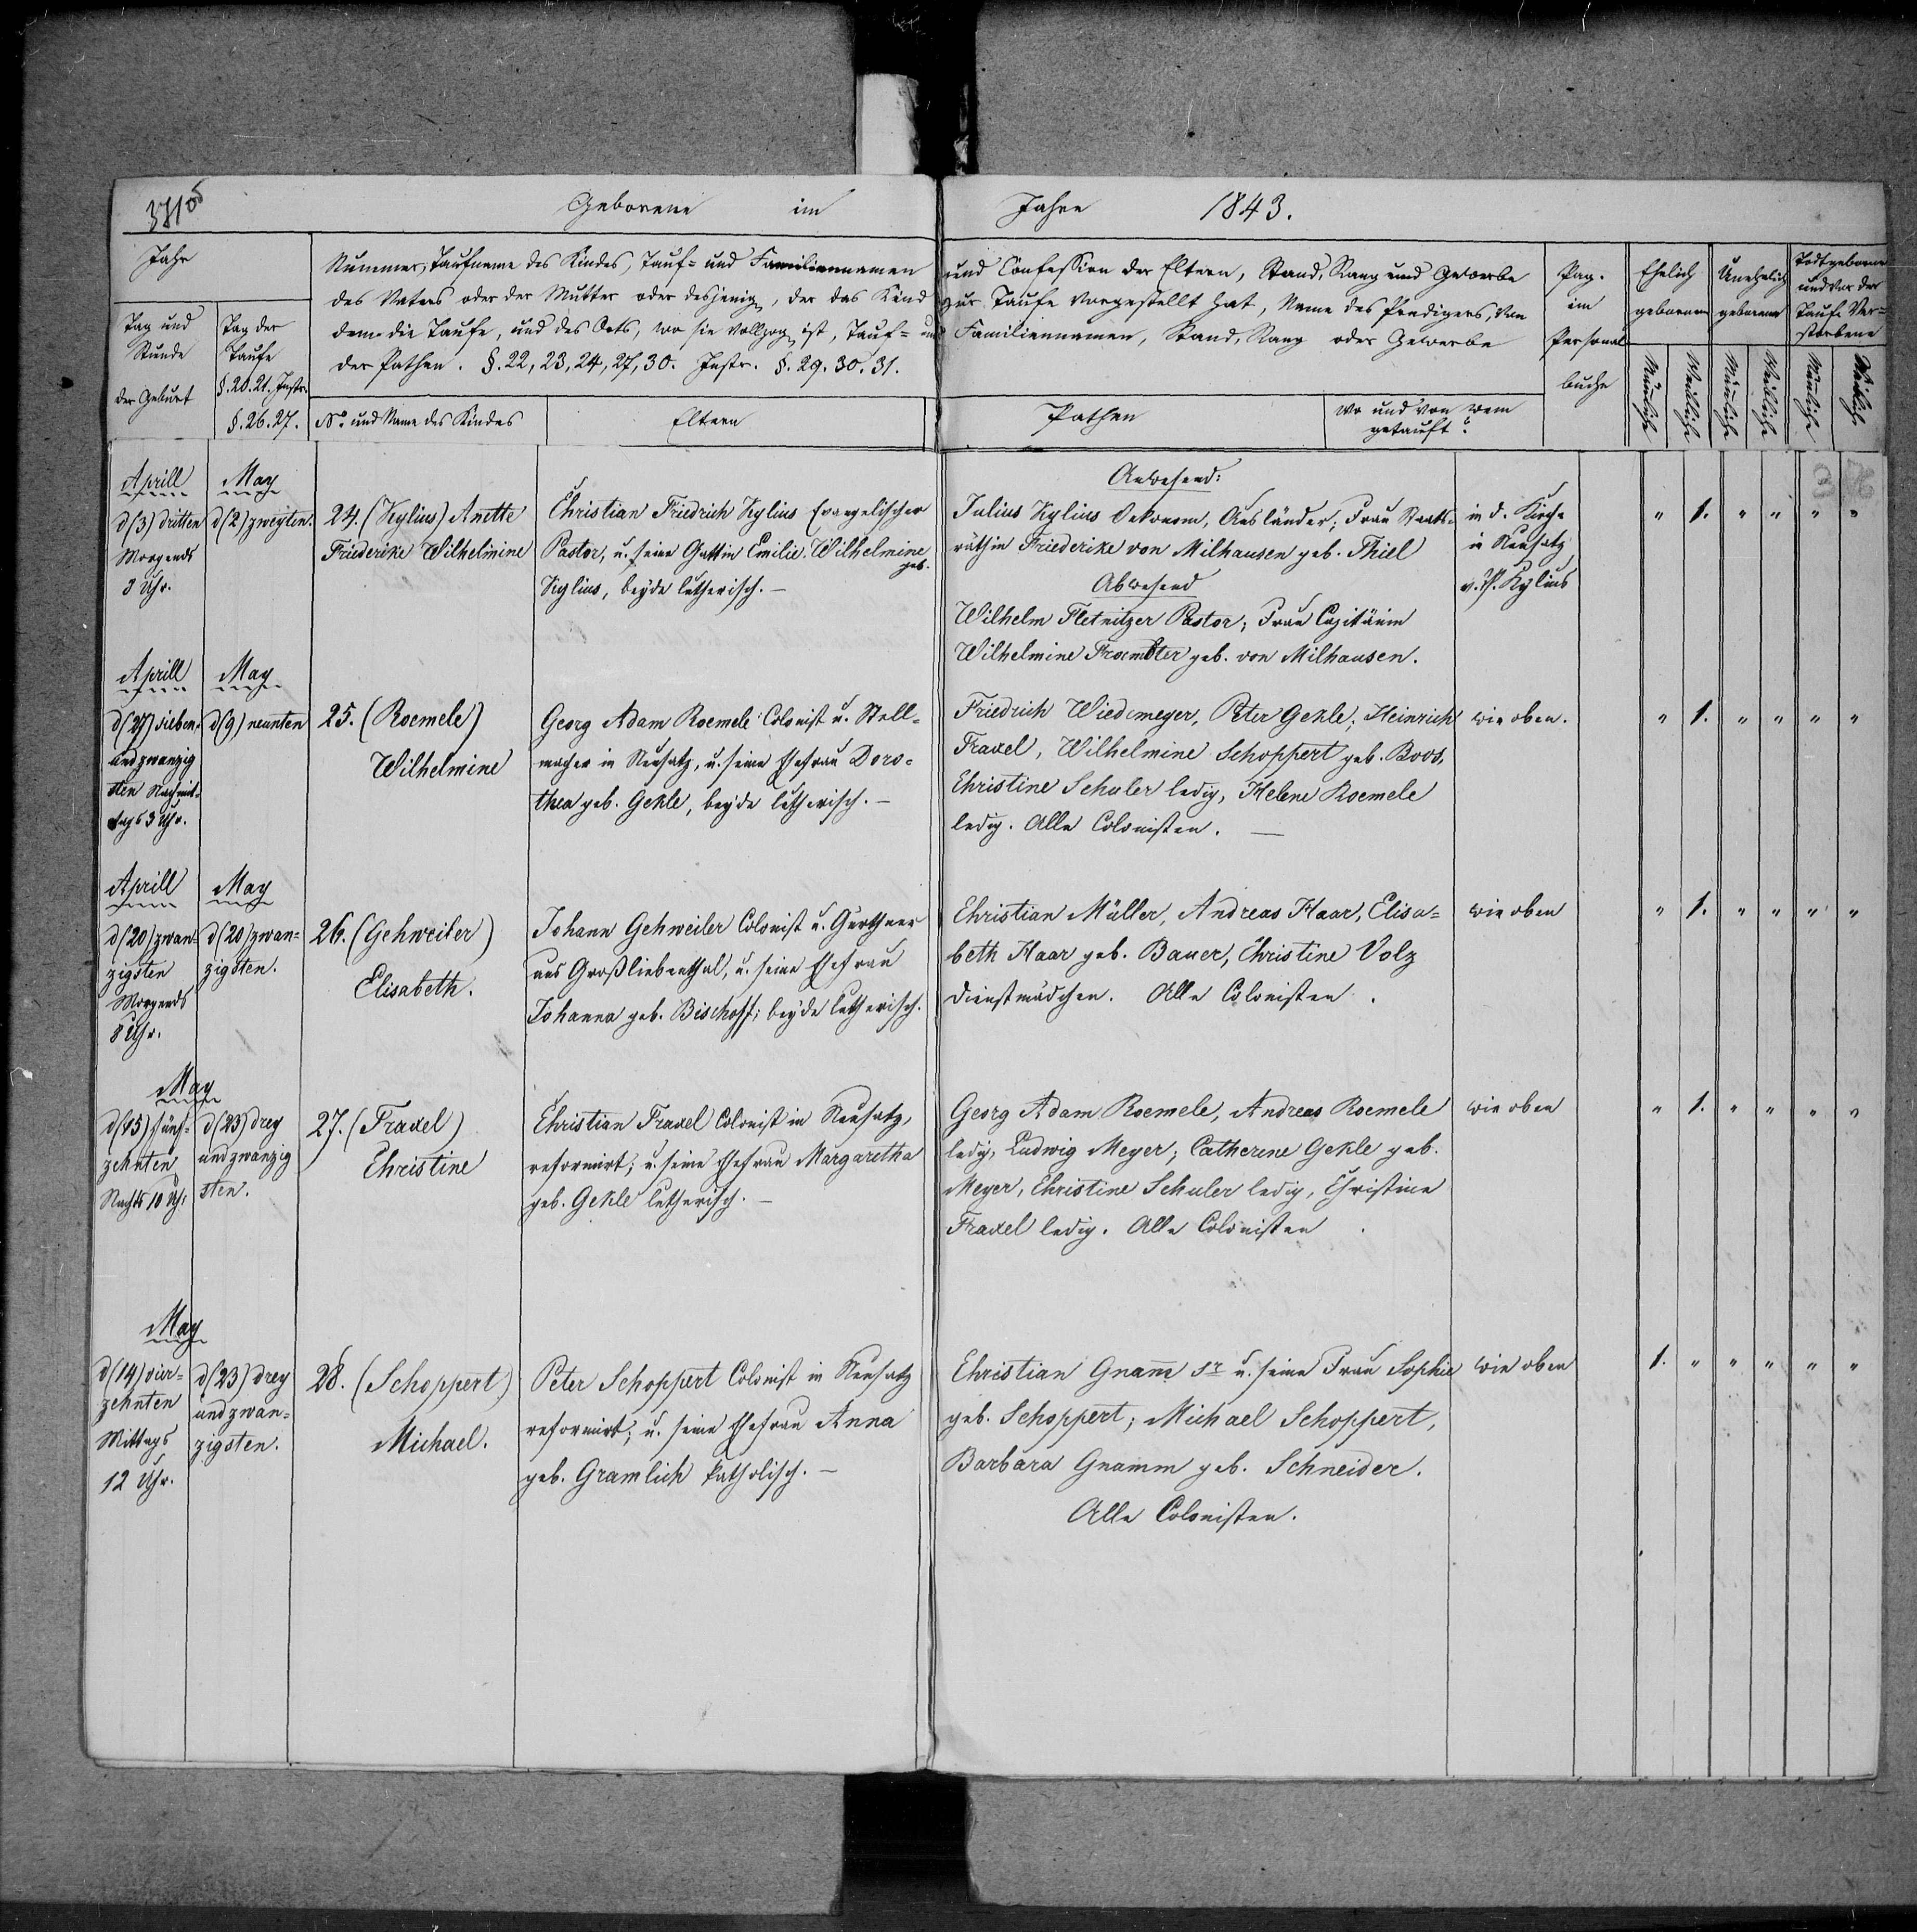 Geborene im
Jahre 1843.
Jahr
Tag und Stunde der Geburt
Tag der Taufe
§. 20. 21. Instr.
§. 26. 27.
Nummer, Taufname des Kindes, Tauf- und Familiennamen
des Vaters oder der Mutter oder desjenig, der das Kind
dem die Taufe, und des Orts, wo sie vollzog ist, Tauf- und
der Pathen. §. 22, 23, 24, 27, 30. Instr. §. 29. 30. 31.
No. und Name des Kindes
Eltern
und Confession der Eltern, Stand, Rang und Gewerbe
zur Taufe vorgestellt hat, Name des Predigers, von
Familiennamen, Stand, Rang oder Gewerbe
Pathen
wo und von wem
getauft?
Pag.
im
Personal
buche
Ehelich
geborene
Unehelich
geborene
Todtgeborne
und vor der
Taufe Ver=
storbene
Männliche
Weibliche
Männliche
Weibliche
Männliche
Weibliche
Aprill
d (3) dritten
Morgends
3 Uhr.
May
d (2) zweyten.
24. (Kylius) Anette
Friederike Wilhelmine
Christian Friedrich Kylius Evangelischer
Pastor, u. seine Gattin Emilie Wilhelmine
geb.
Kylius, beyde lutherisch. —
Anwesend:
Julius Kylius Oekonom, Ausländer; Frau Staats=
räthin Friederike von Milhausen geb. Thiel
Abwesend
Wilhelm Fletnitzer Pastor; Frau Capitänin
Wilhelmine geb. von Milhausen.
in d. Kirche
in Neusatz
v. P. Kylius
" 1. " " " "
Aprill
d (27) sieben
und zwanzig
sten Nachmit=
tags 3 Uhr.
May
d (9) neunten
25. (Roemele)
Wilhelmine
Georg Adam Roemele Colonist u. Stell=
macher in Neusatz, u. seine Ehefrau Doro=
thea geb. Gekle, beyde lutherisch. —
Friedrich Wiedemeyer, Peter Gekle, Heinrich
Fraxel, Wilhelmine Schoppert geb. Boos,
Christine Schuler ledig, Helene Roemele
ledig. Alle Colonisten. —
wie oben.
" 1. " " " "
Aprill
d (20) zwan=
zigsten
Morgends
8 Uhr.
May
d (20) zwan=
zigsten.
26. (Gehweiler)
Elisabeth.
Johann Gehweiler Colonist u. Gärthner
aus Großliebenthal, u. seine Ehefrau
Johanna geb. Bischoff; beyde lutherisch.
Christian Müller, Andreas Haar, Elisa=
beth Haar geb. Bauer, Christine Volz
Dienstmädchen. Alle Colonisten.
wie oben
" 1. " " " "
May
d (15) fünf=
zehnten
Nachts 10 Uhr
d (23) drey
und zwanzig
sten.
27. (Fraxel)
Christine
Christian Fraxel Colonist in Neusatz,
reformirt; u. seine Ehefrau Margaretha
geb. Gekle lutherisch. —
Georg Adam Roemele, Andreas Roemele
ledig, Ludwig Meyer; Catherine Gekle geb.
Meyer, Christine Schuler ledig, Christine
Fraxel ledig. Alle Colonisten.
wie oben
" 1. " " " "
May
d (14) vier=
zehnten
Mittags
12 Uhr.
d (23) drey
und zwan=
zigsten.
28. (Schoppert)
Michael.
Peter Schoppert Colonist in Neusatz
reformirt; u. seine Ehefrau Anna
geb. Gramlich katholisch. —
Christian Gnam̅ Sr u. seine Frau Sophie
geb. Schoppert; Michael Schoppert,
Barbara Gnamm geb. Schneider.
Alle Colonisten.
wie oben
1. " " " " "